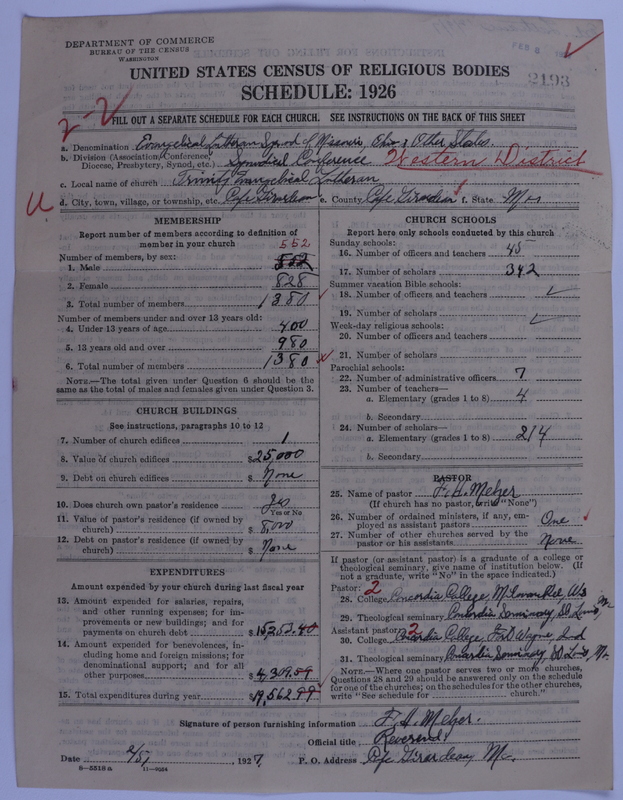 DEPARTMENT OF COMMERCE
BUREAU OF THE CENSUS
WASHINGTON
FEB 8
2193
UNITED STATES CENSUS OF RELIGIOUS BODIES
SCHEDULE: 1926
2-2
FILL OUT A SEPARATE SCHEDULE FOR EACH CHURCH. SEE INSTRUCTIONS ON THE BACK OF THIS SHEET
a. Denomination Evangelical Lutheran Synod of Missouri, Ohio & Other States
b. Division (Association, Conference, Diocese, Presbytery, Synod, etc.) Synodical Conference Western District
c. Local name of church Trinity Evangelical Lutheran
d. City, town, village, or township, etc. Cape Girardeau e. County Cape Girardeau f. State Mo
U
MEMBERSHIP
Report number of members according to definition of member in your church
552
Number of members, by sex:
1. Male 552
2. Female 828
3. Total number of members 1380
Number of members under and over 13 years old:
4. Under 13 years of age 400
5. 13 years old and over 980
6. Total number of members 1380
NOTE.—The total given under Question 6 should be the same as the total of males and females given under Question 3.
CHURCH BUILDINGS
See instructions, paragraphs 10 to 12
7. Number of church edifices 1
8. Value of church edifices $25,000
9. Debt on church edifices $ None
10. Does church own pastor's residence Yes
Yes or No
11. Value of pastor's residence (if owned by church) $ 8,000
12. Debt on pastor's residence (if owned by church) $ None
EXPENDITURES
Amount expended by your church during last fiscal year
13. Amount expended for salaries, repairs, and other running expenses; for improvements or new buildings; and for payments on church debt $15,253.40
14. Amount expended for benevolences, including home and foreign missions; for denominational support; and for all other purposes $4,309.59
15. Total expenditures during year $19,562.99
CHURCH SCHOOLS
Report here only schools conducted by this church
Sunday schools:
16. Number of officers and teachers 45
17. Number of scholars 342
Summer vacation Bible schools:
18. Number of officers and teachers
19. Number of scholars
Week-day religious schools:
20. Number of officers and teachers
21. Number of scholars
Parochial schools:
22. Number of administrative officers 7
23. Number of teachers—
a. Elementary (grades 1 to 8) 4
b. Secondary
24. Number of scholars—
a. Elementary (grades 1 to 8) 214
b. Secondary
PASTOR
25. Name of pastor F. H. Melzer
(If church has no pastor, write "None")
26. Number of ordained ministers, if any, employed as assistant pastors One
27. Number of other churches served by the pastor or his assistants None
If pastor (or assistant pastor) is a graduate of a college or theological seminary, give name of institution below. (If not a graduate, write "No" in the space indicated.)
Pastor: 2
28. College Concordia College, Milwaukee, Wis
29. Theological seminary Concordia Seminary, St. Louis, Mo
Assistant pastor: 2
30. College Concordia College, Ft. Wayne, Ind
31. Theological seminary Concordia Seminary St. Louis, Mo.
NOTE.—Where one pastor serves two or more churches, Questions 28 and 29 should be answered only on the schedule for one of the churches; on the schedules for the other churches, write "See schedule for church."
Signature of person furnishing information F. H. Melzer.
Official title Reverend
Date 2/5, 1927. P. O. Address Cape Girardeau, Mo.
8—5518 a 11—9034